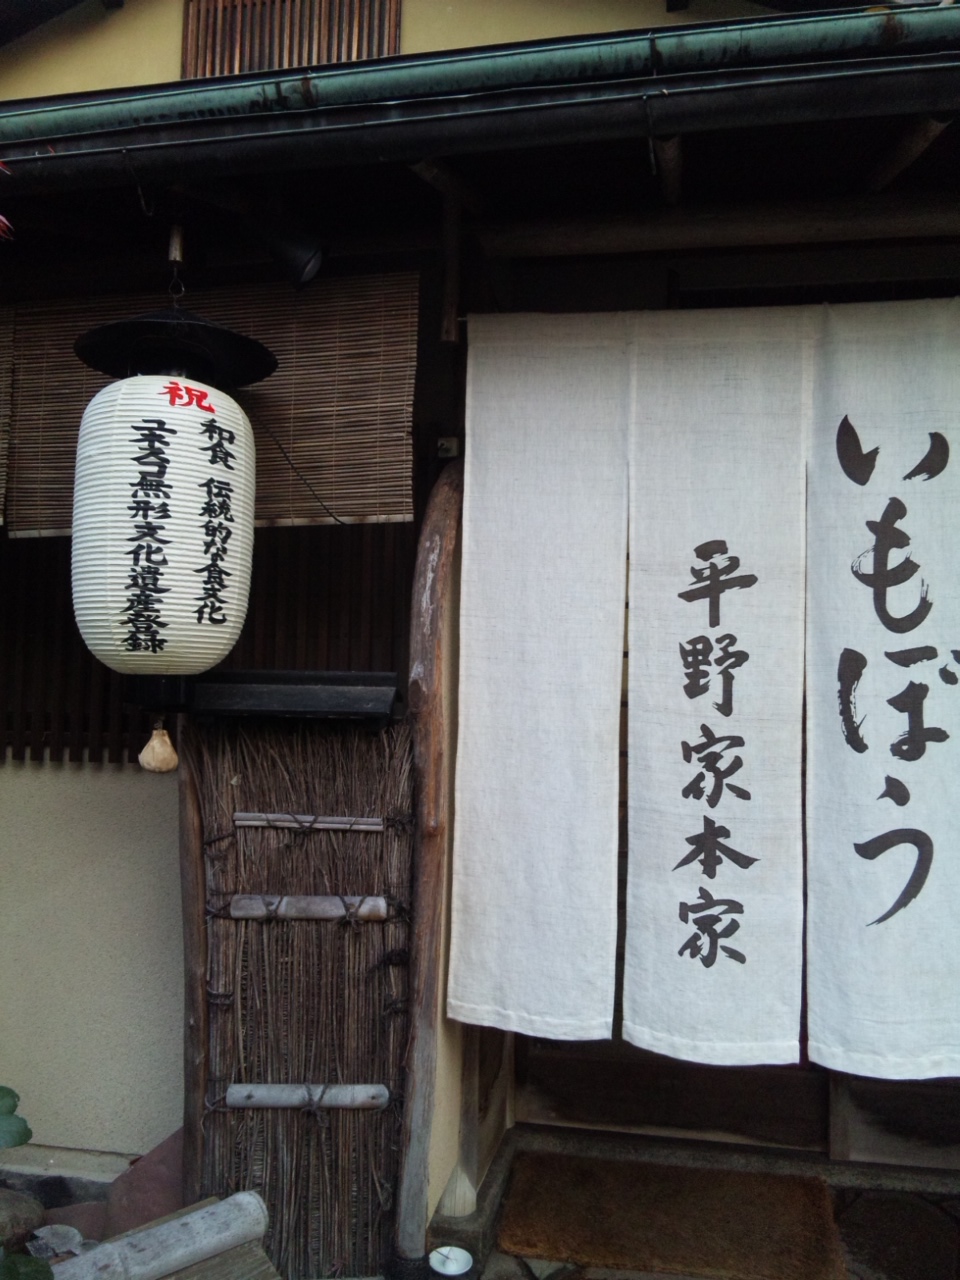 いもぼう
平野家本家
祝
和食 伝統的な食文化
ユネスコ無形文化遺産登録